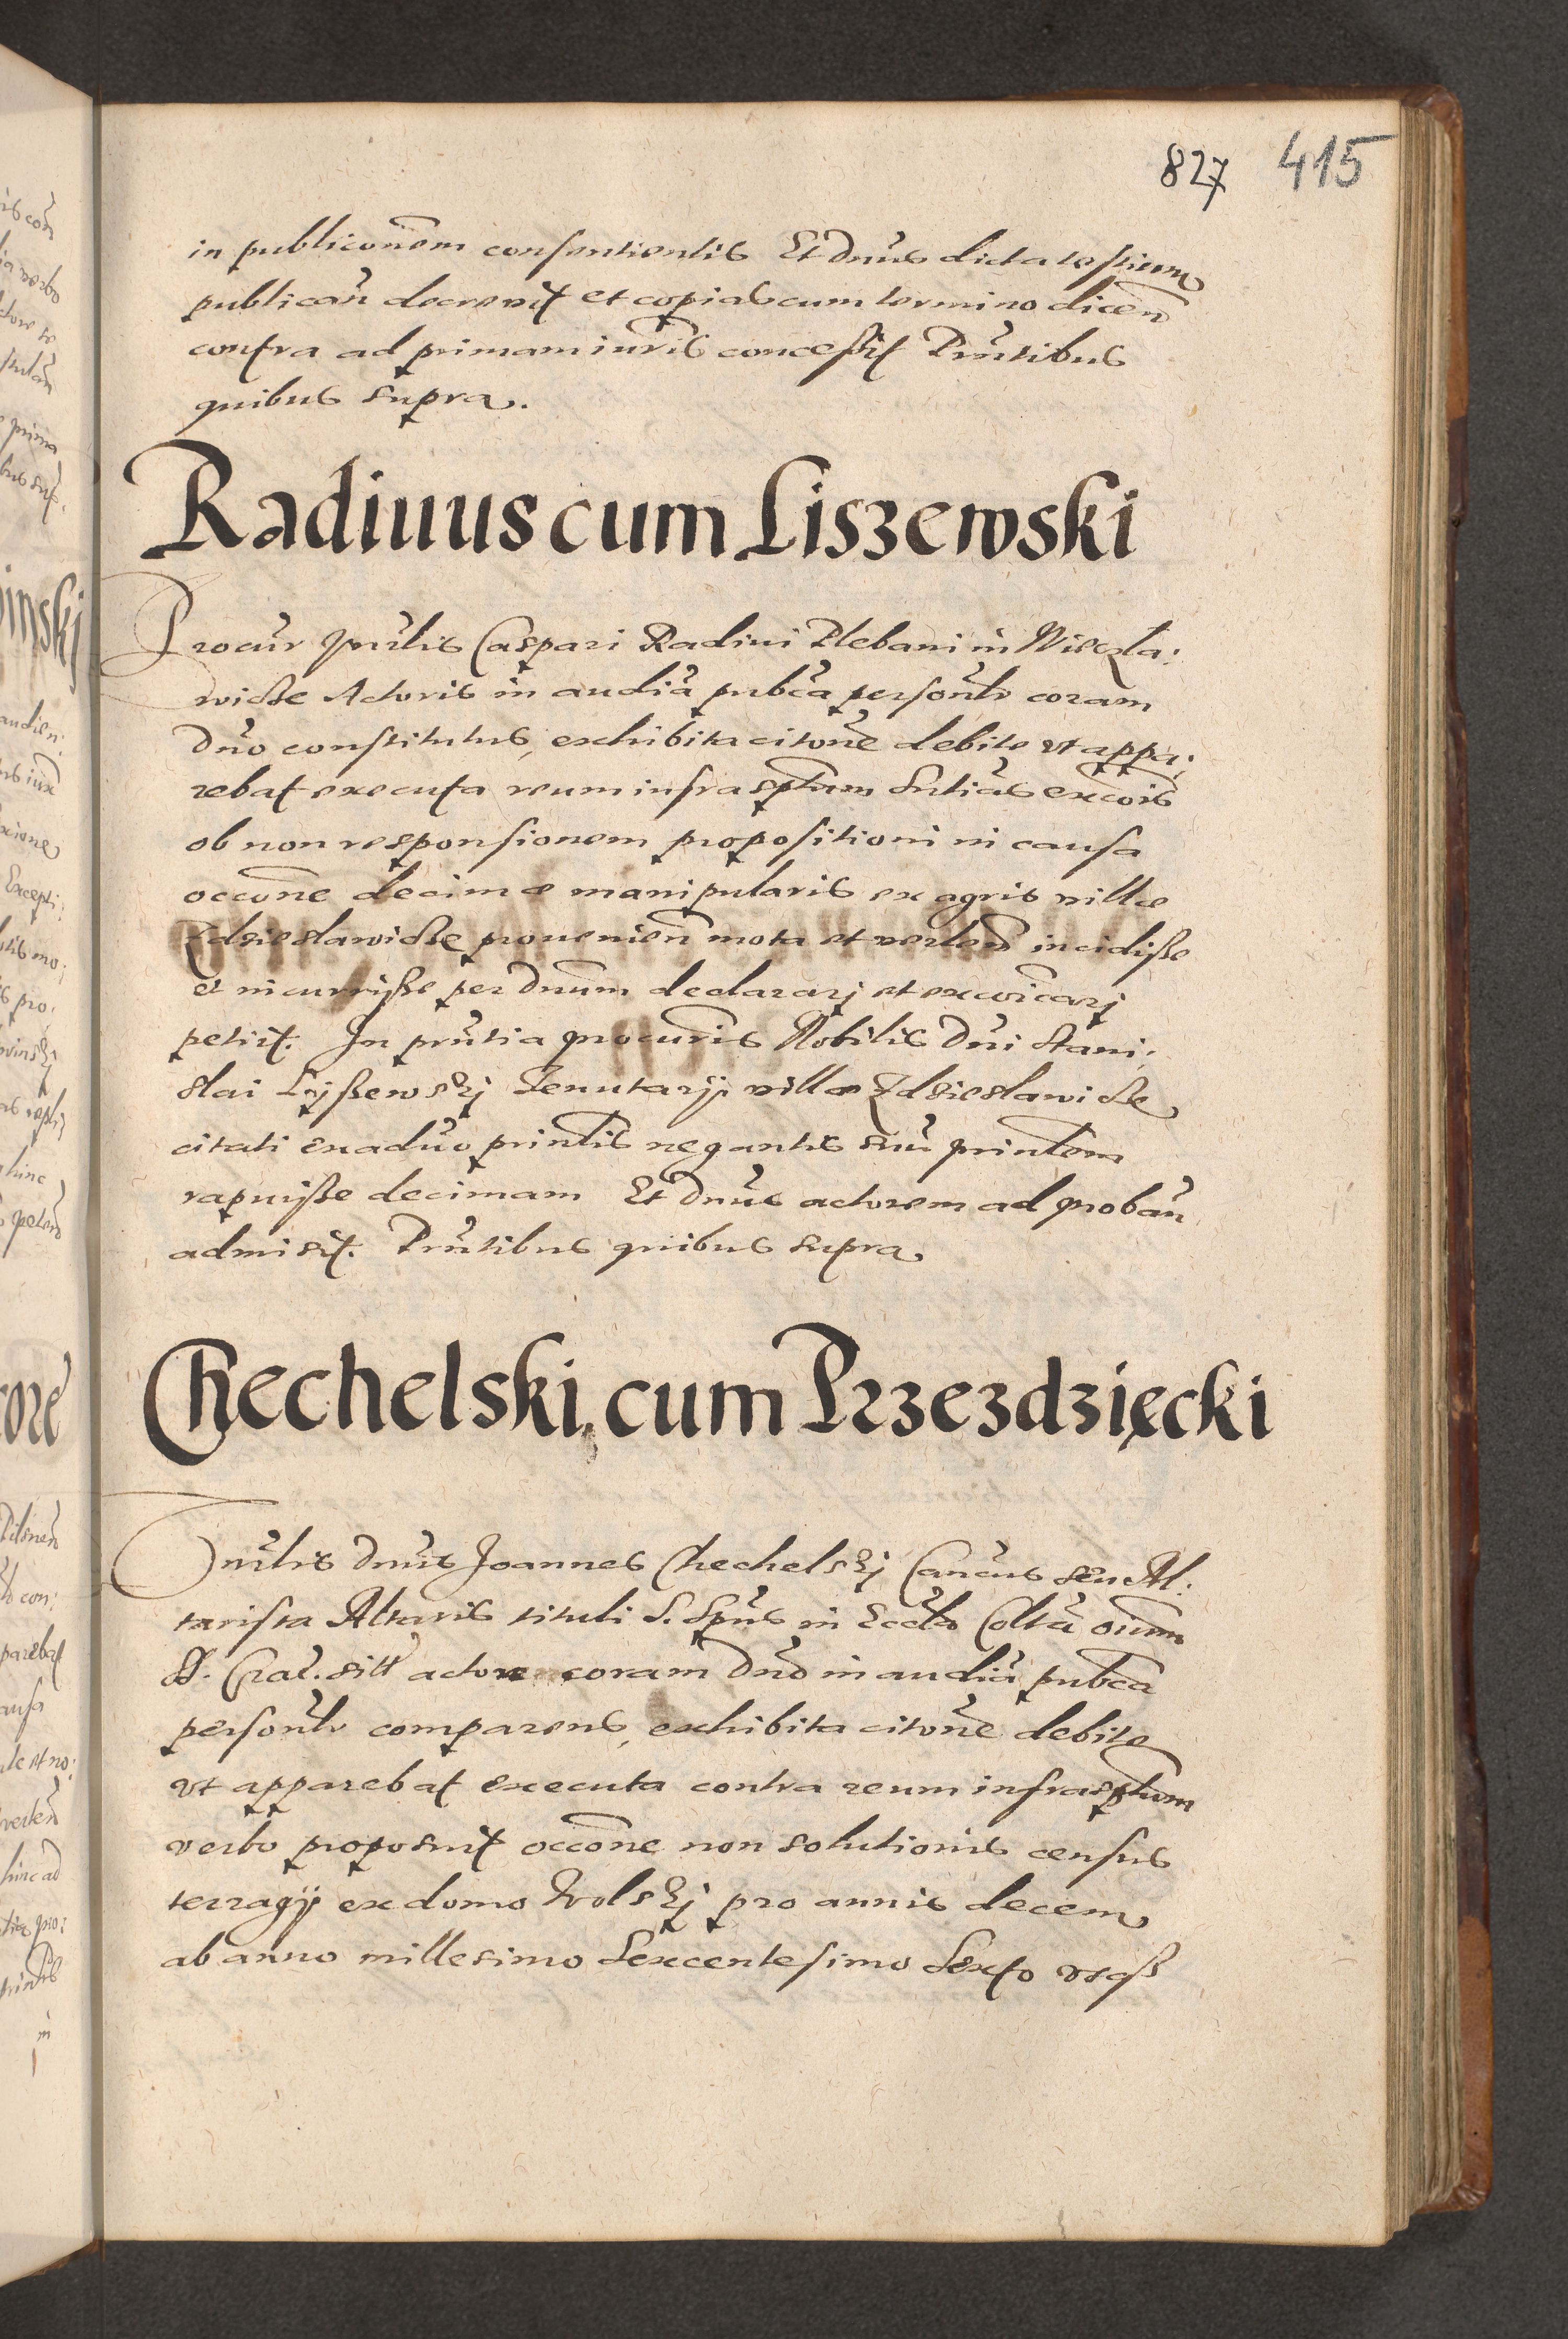 827 415
in publicoñem consentientis Et Dnus dicta testium
publicañ decrevit et copias cum termino diceñ
contra ad primam iuris concessit Pñtibus
quibus supra.
Radiuus cum Liszewski
Procur Hnrlis Caspari Radini Plebani in Miecla:
wicze Actoris in audiã pubca personlr coram
Dño constitutus, exhibita citone debite vt appa:
rebat executa reum infrasptum Sntias excois
ob non responsionem propositioni in causa
occone decimæ manipularis ex agris villæ
Zdzieslawicze proueniẽn mota et verteñ incidisse
et incurrisse per Dnum declararj et excoicarj
petiit. In pñtia procuris Nobilis Dni Stani:
slai Lyszewskj Tenutarij villæ Zdzieslawicze
citati ex aduo prinlis negantis suũ prinlem
rapuisse decimam Et Dnus actorem ad probañ
admisit. Pñtibus quibus supra
Chechelski cum Przezdzięcki
Hnrlis Dnus Joannes Chechelskj Cancus seu Al:
tarista Altaris tituli S. Spus in Eccla Collta oium
SS. Crac. actor coram Dño in audiã pubca
personlr comparens, exhibita citone debite
vt apparebat executa contra reum infrasptum
verbo proposuit occone non solutionis census
terragij ex domo Wolskj pro annis decem
ab anno millesimo Sexcentesimo Sexto